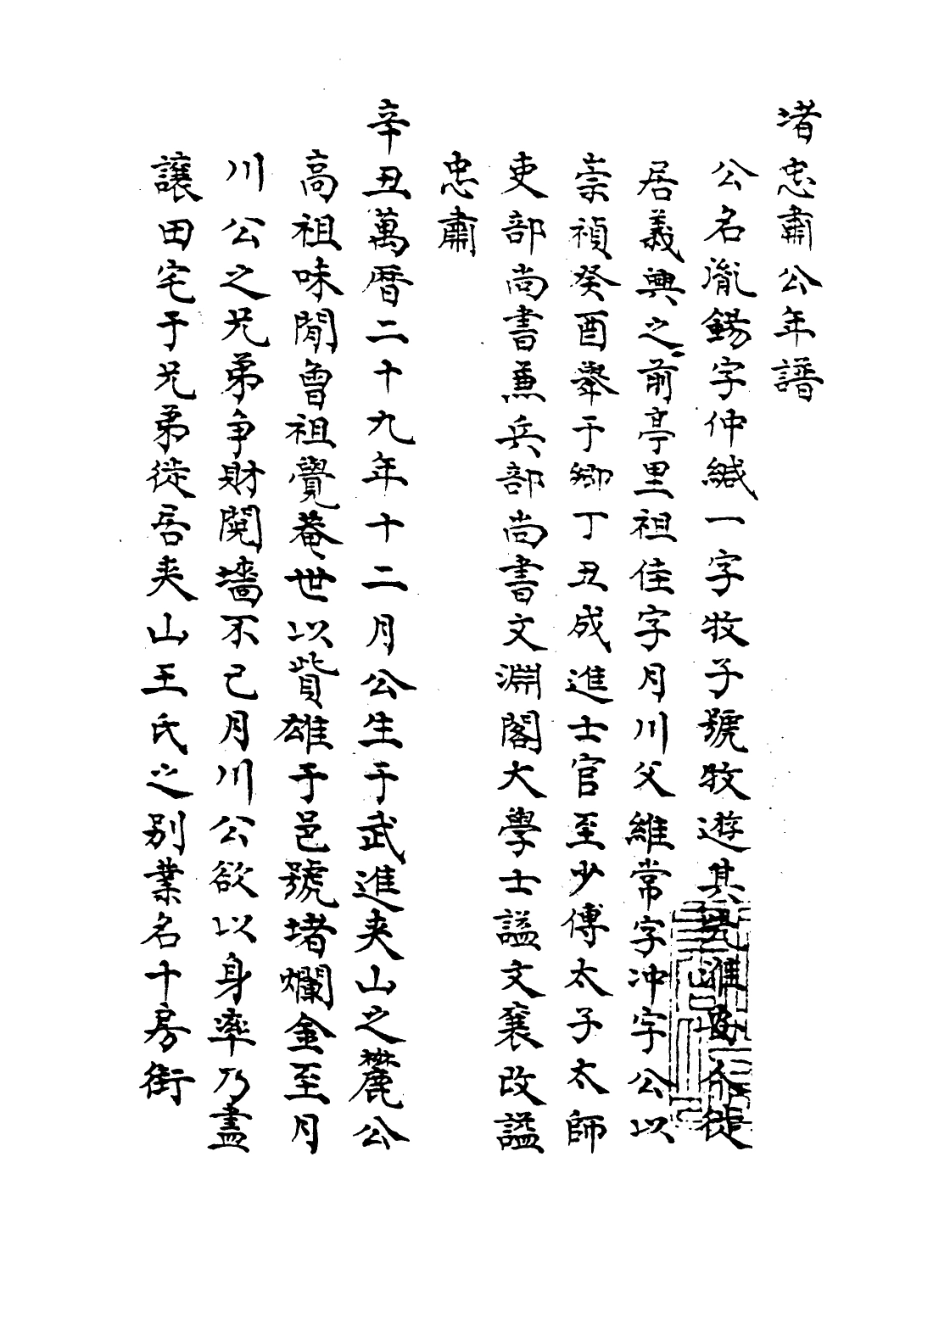 堵忠肅公年譜
公名胤錫字仲緘一字牧子號牧遊其先淮陰人徙
居義興之前亭里祖佳字月川父維常字冲宇公以
崇禎癸酉舉于鄉丁丑成進士官至少傅太子太師
吏部尚書兼兵部尚書文淵閣大學士謚文襄改謚
忠肅
辛丑萬曆二十九年十二月公生于武進夾山之麓公
高祖味閒曾祖覺菴世以貲雄于邑號堵爛金至月
川公之兄弟争財鬩墻不已月川公欲以身率乃盡
讓田宅于兄弟徙居夾山王氏之别業名十房街